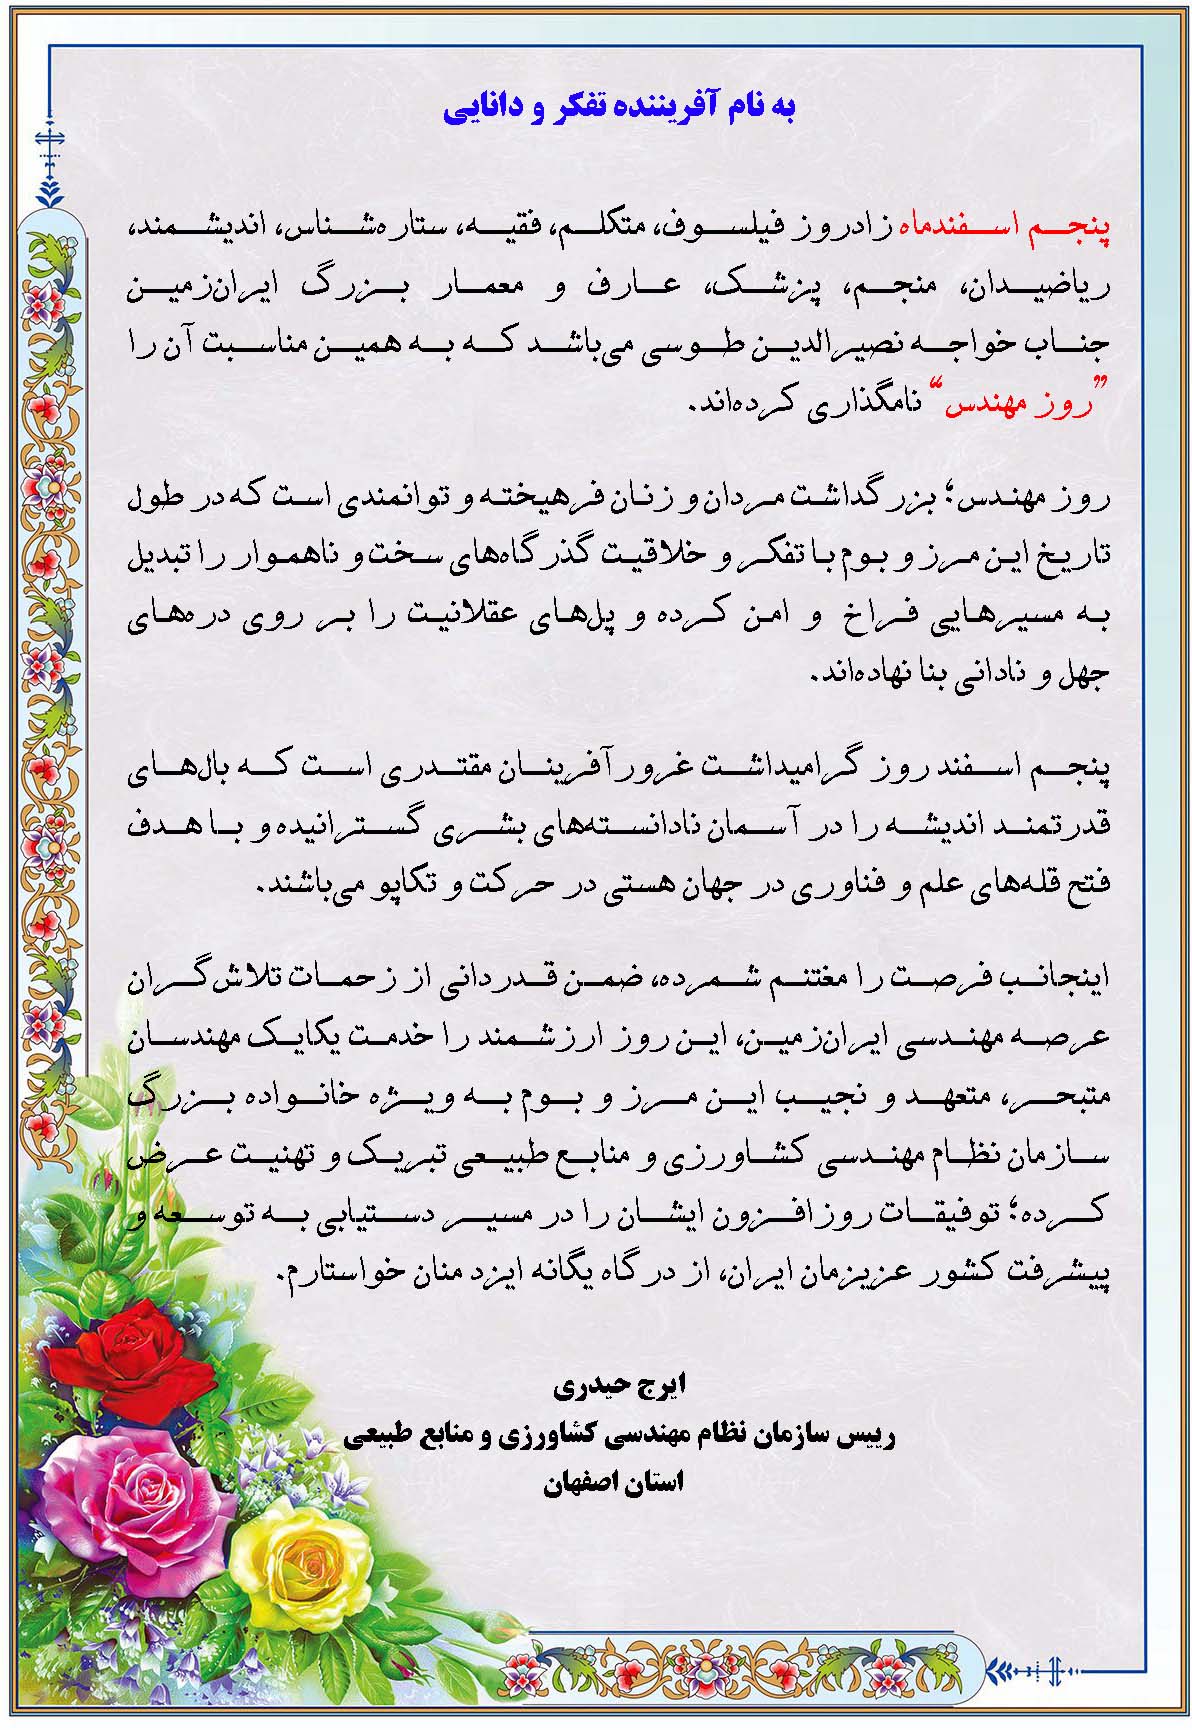 به نام آفریننده تفکر و دانایی
پنجم اسفندماه زادروز فیلسوف، متکلم، فقیه، ستاره‌شناس، اندیشمند،
ریاضیدان، منجم، پزشک، عارف و معمار بزرگ ایران‌زمین
جناب خواجه نصیرالدین طوسی می‌باشد که به همین مناسبت آن را
”روز مهندس“ نامگذاری کرده‌اند.
روز مهندس؛ بزرگداشت مردان و زنان فرهیخته و توانمندی است که در طول
تاریخ این مرز و بوم با تفکر و خلاقیت گذرگاه‌های سخت و ناهموار را تبدیل
به مسیرهایی فراخ و امن کرده و پل‌های عقلانیت را بر روی دره‌های
جهل و نادانی بنا نهاده‌اند.
پنجم اسفند روز گرامیداشت غرورآفرینان مقتدری است که بال‌های
قدرتمند اندیشه را در آسمان نادانسته‌های بشری گسترانیده و با هدف
فتح قله‌های علم و فناوری در جهان هستی در حرکت و تکاپو می‌باشند.
اینجانب فرصت را مغتنم شمرده، ضمن قدردانی از زحمات تلاش‌گران
عرصه مهندسی ایران‌زمین، این روز ارزشمند را خدمت یکایک مهندسان
متبحر، متعهد و نجیب این مرز و بوم به ویژه خانواده بزرگ
سازمان نظام مهندسی کشاورزی و منابع طبیعی تبریک و تهنیت عرض
کرده؛ توفیقات روزافزون ایشان را در مسیر دستیابی به توسعه و
پیشرفت کشور عزیزمان ایران، از درگاه یگانه ایزد منان خواستارم.
ایرج حیدری
رییس سازمان نظام مهندسی کشاورزی و منابع طبیعی
استان اصفهان